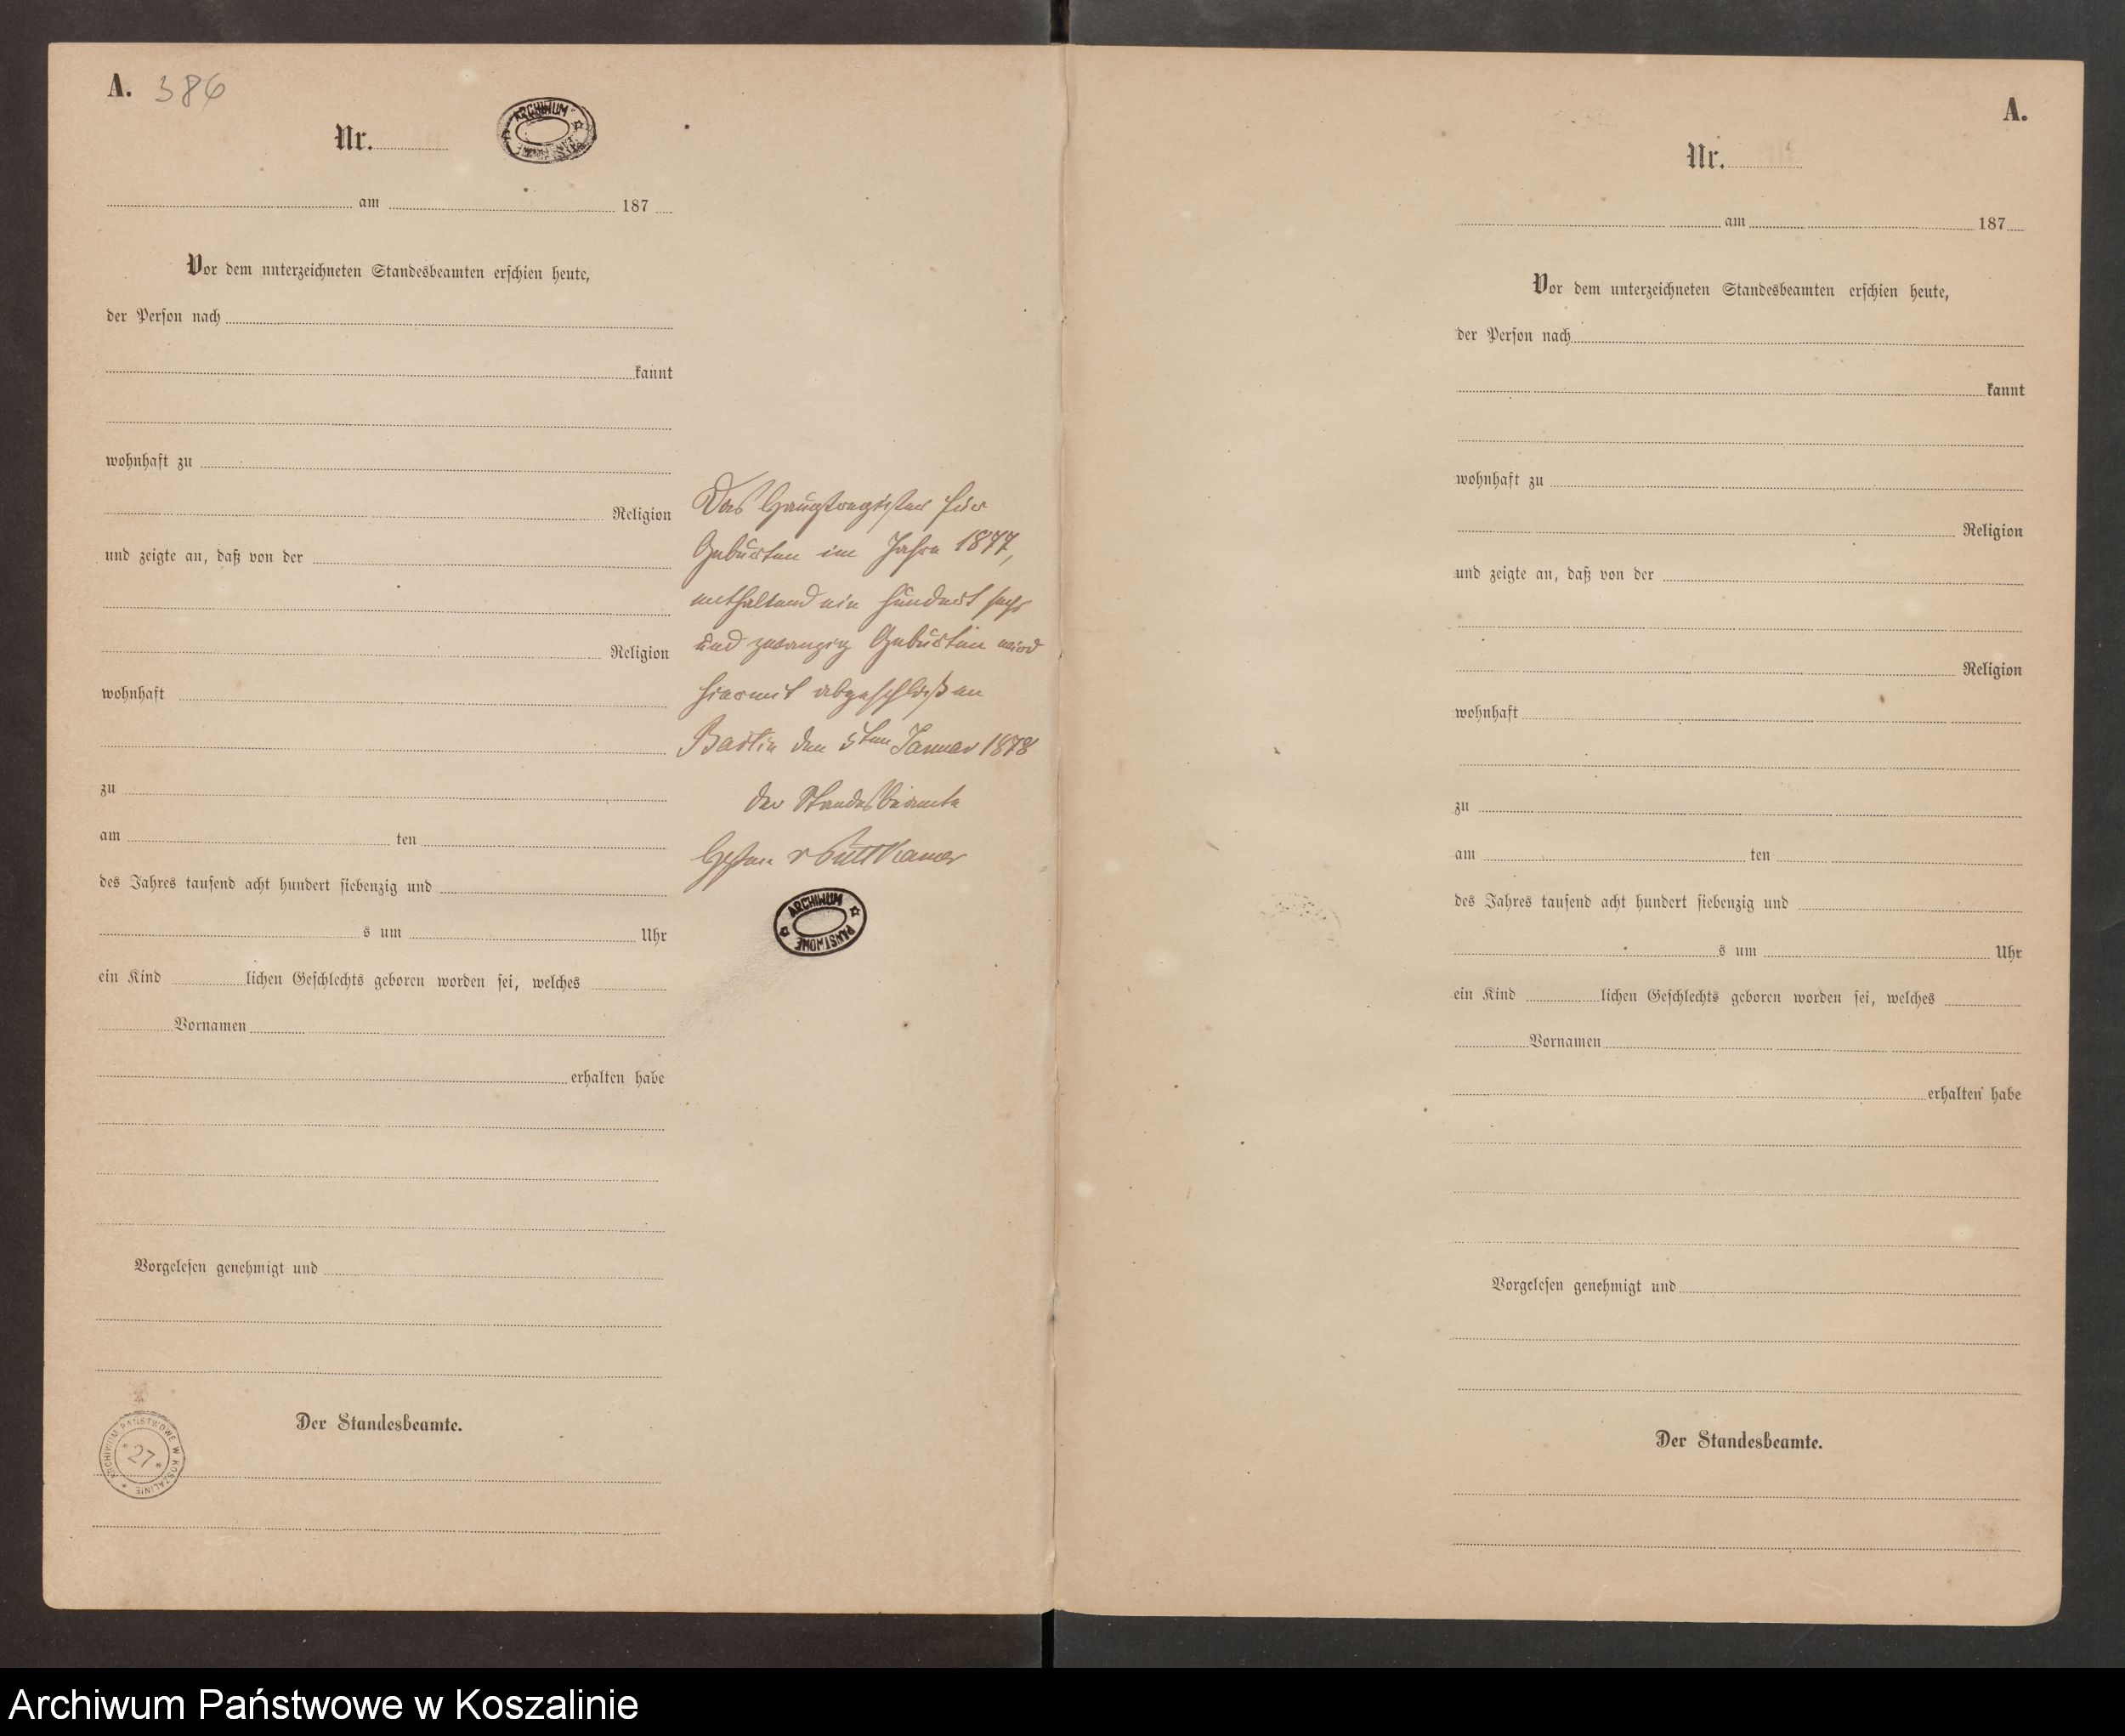 A. 386
Nr.
ARCHIWUM PAŃSTWOWE
am 187
Vor dem unterzeichneten Standesbeamten erschien heute,
der Person nach
kannt
wohnhaft zu
Religion
und zeigte an, daß von der
Religion
wohnhaft
zu
am ten
des Jahres tausend acht hundert siebenzig und
s um Uhr
ein Kind lichen Geschlechts geboren worden sei, welches
Vornamen
erhalten habe
Vorgelesen genehmigt und
Der Standesbeamte.
ARCHIWUM PAŃSTWOWE W KOSZALINIE
27
Das Hauptregister für
Geburten im Jahre 1877,
enthaltend ein hundert sechs
und zwanzig Geburten wird
hiermit abgeschloßen
Bartin den 5ten Januar 1878
Der Standesbeamte
v Puttkamer
ARCHIWUM PAŃSTWOWE
A.
Nr.
am 187
Vor dem unterzeichneten Standesbeamten erschien heute,
der Person nach
kannt
wohnhaft zu
Religion
und zeigte an, daß von der
Religion
wohnhaft
zu
am ten
des Jahres tausend acht hundert siebenzig und
s um Uhr
ein Kind lichen Geschlechts geboren worden sei, welches
Vornamen
erhalten habe
Vorgelesen genehmigt und
Der Standesbeamte.
Archiwum Państwowe w Koszalinie